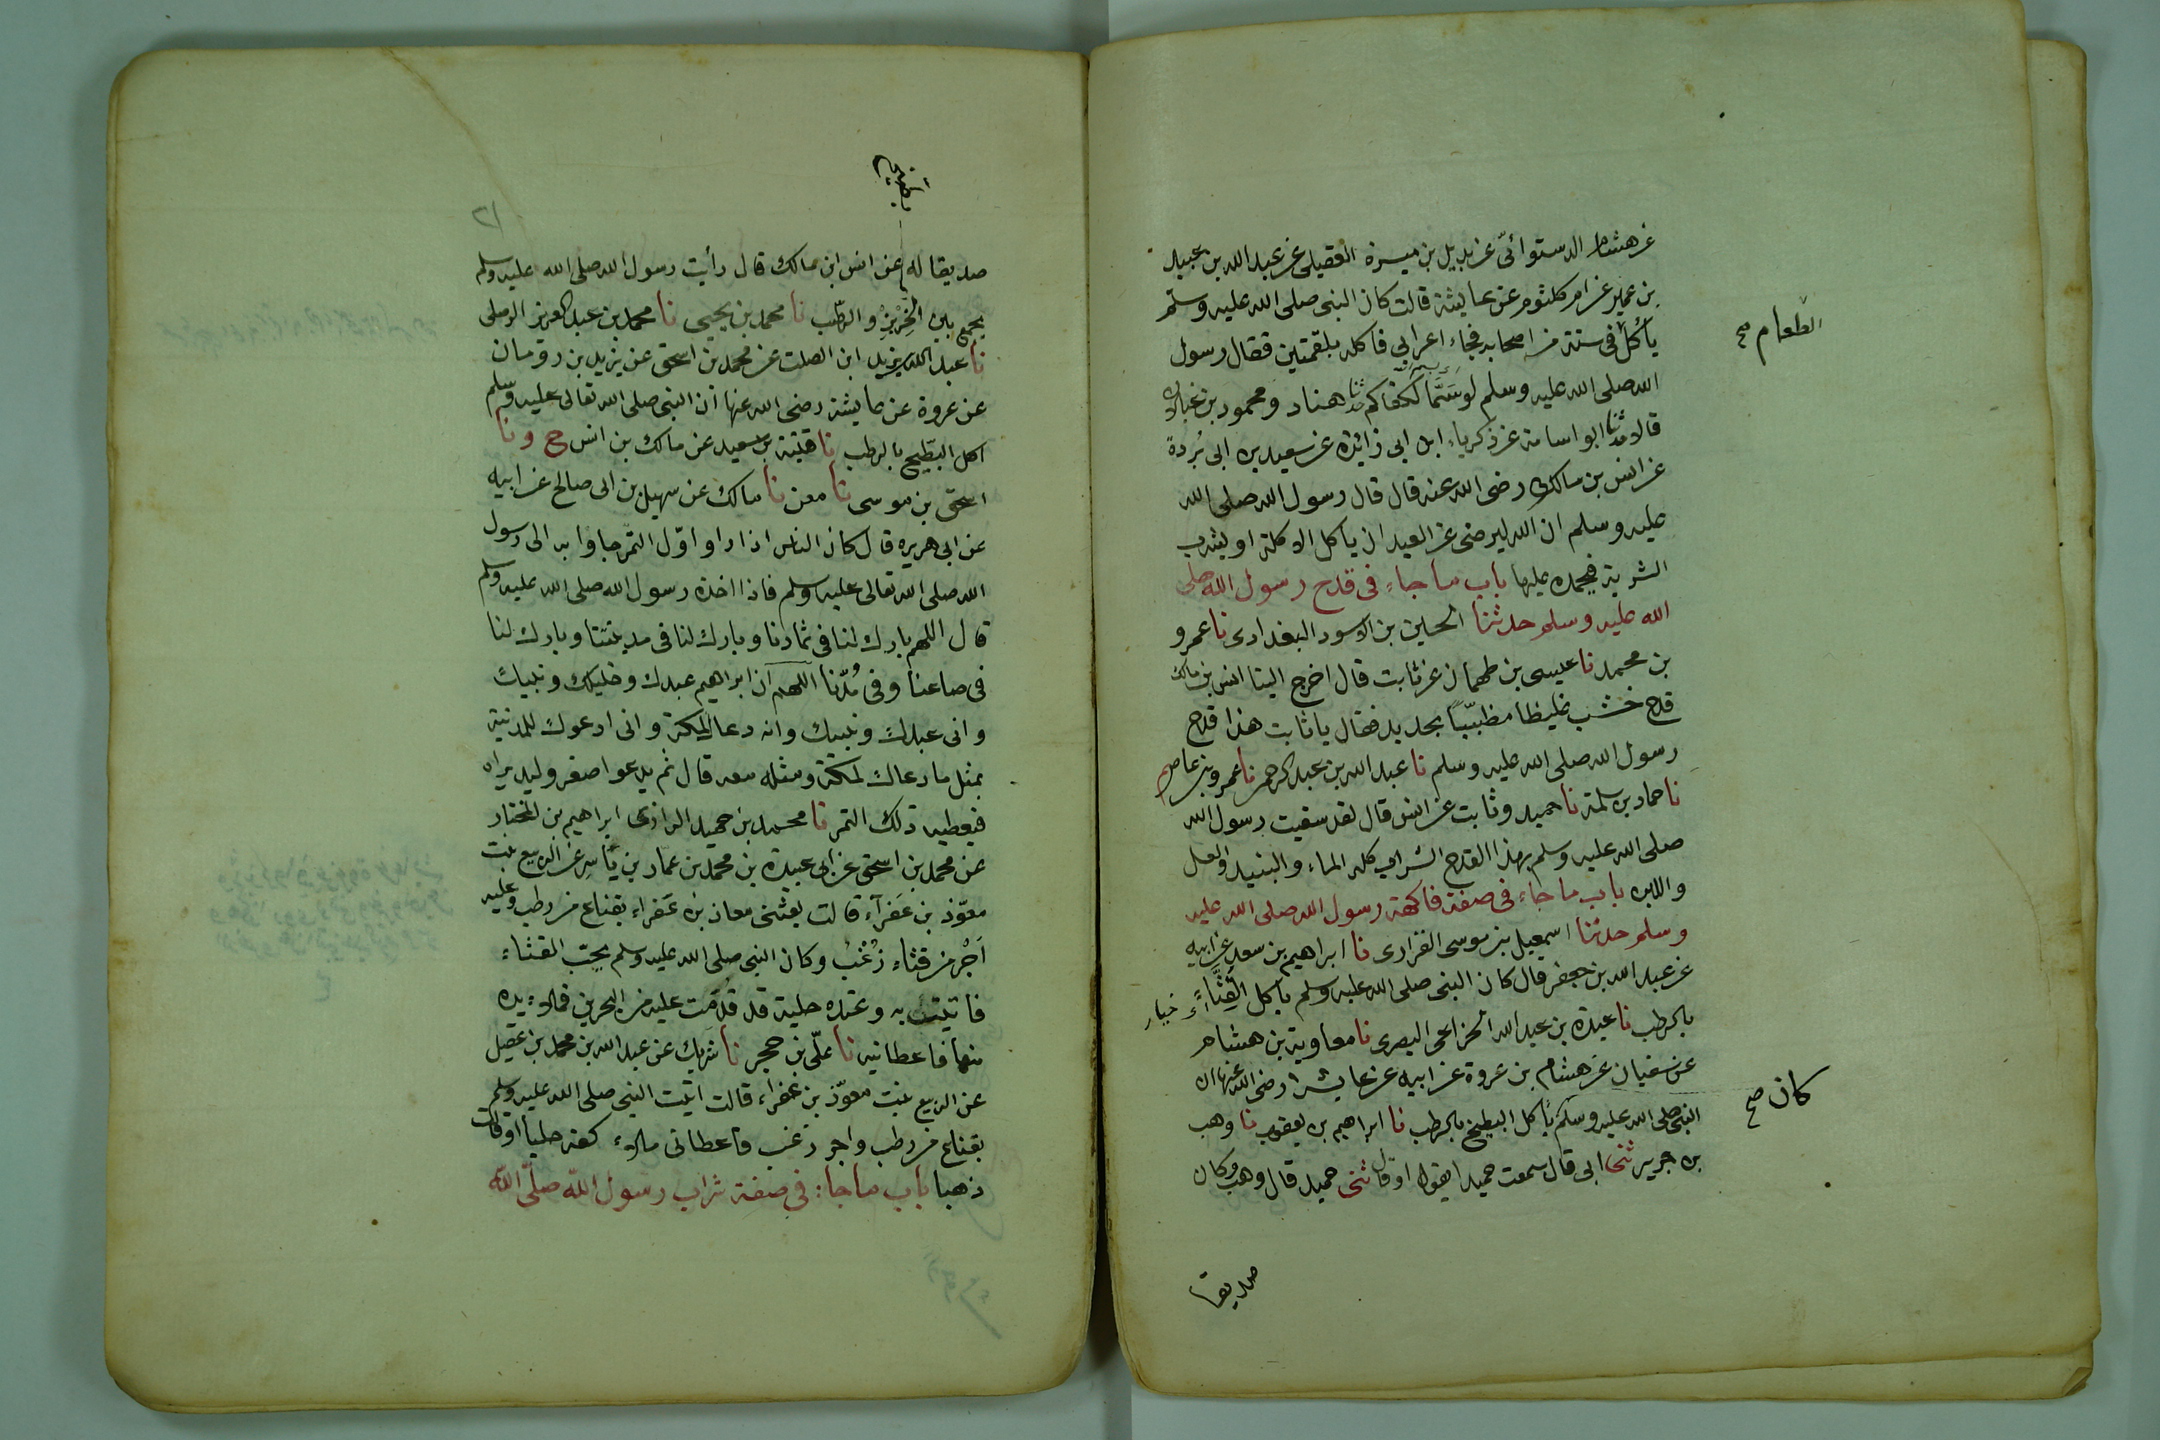 عن هشام الدستوائيّ عن بديل بن ميسرة العقيلي عن عبد الله بن عبيد
بن عمير عن ام كلثوم عن عايشة قالت كان النبي صلى الله عليه وسلم
الطعام صح
يأكل في ستة من اصحابه فجاء اعرابي فاكله بلقمتين فقال رسول
الله صلى الله عليه وسلم لو سَمَّا لكفاكم حدثنا هناد ومحمود بن غيلان
قالا حدثنا ابو اسامة عن زكرياء ابن ابي زائدة عن سعيد بن ابي بُردة
عن انس بن مالك رضى الله عنه قال قال رسول الله صلى الله
عليه وسلم ان الله ليرضى عن العبد ان ياكل الاكلة او يشرب
الشربة فيحمده عليها باب ما جاء في قدح رسول الله صلى
الله عليه وسلم حدثنا الحسين بن الاسود البغدادى نا عمرو
بن محمد نا عيسى بن طهمان عن ثابت قال اخرج الينا انس بن مالك
قدح خشب غليظا مظبّبًا بحديد فقال يا ثابت هذا قدح
رسول الله صلى الله عليه وسلم نا عبد الله بن عبد الرحمن نا عمرو بن عاصم
نا حماد بن سلمة نا حميد وثابت عن انس قال لقد سقيت رسول الله
صلى الله عليه وسلم بهذا القدح الشراب كله الماء والنبيذ والعسل
واللبن باب ما جاء في صفة فاكهة رسول الله صلى الله عليه
وسلم حدثنا اسمعيل بن موسى الفزارى نا ابراهيم بن سعد عن ابيه
عن عبد الله بن جعفر قال كان النبي صلى الله عليه وسلم يأكل القِثَّاءَ خيار
بالرطب نا عبدة بن عبد الله الخزاعى البصرى نا معاوية بن هشام
عن سفيان عن هشام بن عروة عن ابيه عن عايشة رضى الله عنها ان
كان صح
النبي صلى الله عليه وسلم يأكل البطيخ بالرطب نا ابراهيم بن يعقوب نا وهب
بن جرير ثنى ابى قال سمعت حميدا يقول او قال ثنى حميد قال وهب وكان
صديقا
١٢
صديقا له عن انس ابن مالك قال رأيت رسول الله صلى الله عليه وسلم
يجمع بين الخِرْبِزِ والرطب نا محمد بن يحيى نا محمد بن عبد العزيز الرملى
نا عبد الله بن يزيد ابن الصلت عن محمد بن اسحق عن يزيد بن رومان
عن عروة عن عايشة رضى الله عنها ان النبى صلى الله تعالى عليه وسلم
اكل البطّيخ بالرطب نا قتيبة بن سعيد عن مالك بن انس ح ونا
اسحق بن موسى نا معن نا مالك عن سهيل بن ابى صالح عن ابيه
عن ابى هريره قال كان الناس اذا راوا اوّل الثمر جاؤا به الى رسول
الله صلى الله تعالى عليه وسلم فاذا اخذه رسول الله صلى الله عليه وسلم
قال اللهم بارك لنا في ثمارنا وبارك لنا في مدينتنا وبارك لنا
في صاعنا وفى مُدّنا اللهم ان ابراهيم عبدك وخليلك ونبيك
وانى عبدك ونبيك وانه دعاك لمكة وانى ادعوك للمدينة
بمثل ما دعاك لمكة ومثله معه قال ثم يدعو اصغر وليد يراه
فيعطيه ذلك الثمر نا محمد بن حميد الرازى ابراهيم بن المختار
عن محمد بن اسحق عن ابى عبيدة بن محمد بن عمار بن ياسر عن الربيع بنت
معوّذ بن عَفرآء قالت بعثنى معاذ بن عَفراء بقناع من رطب وعليه
اَجْرٍ من قثاء زُغْبٌ وكان النبى صلى الله عليه وسلم يحبّ القثاء
فاتيته به وعنده حلية قد قَدِمَت عليه من البحرين فملاء يده
منها فاعطانيه نا علّى بن حجر نا شريك عن عبد الله بن محمد بن عقيل
عن الربيع بنت معوّذ بن عفراء قالت اتيت النبي صلى الله عليه وسلم
بقناع من رطب واجر زغب فاعطانى ملاء كفه حليا او قالت
ذهبا باب ما جاء في صفة شراب رسول الله صلّى الله